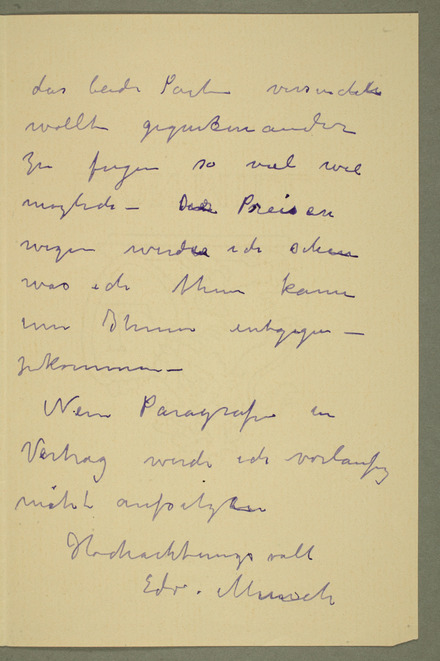 das beide Parten versuchen
wollen gegeneinander
zu fugen so viel wie
moglich – Der Preisen
wegen werde ich sehen
was ich thun kann
um Ihnen entgegen –
zukommen –
Neue Paragrafe in
Vertrag werde ich vorlaufig
nicht aufsetzen
Hochachtungsvoll
Edv. Munch